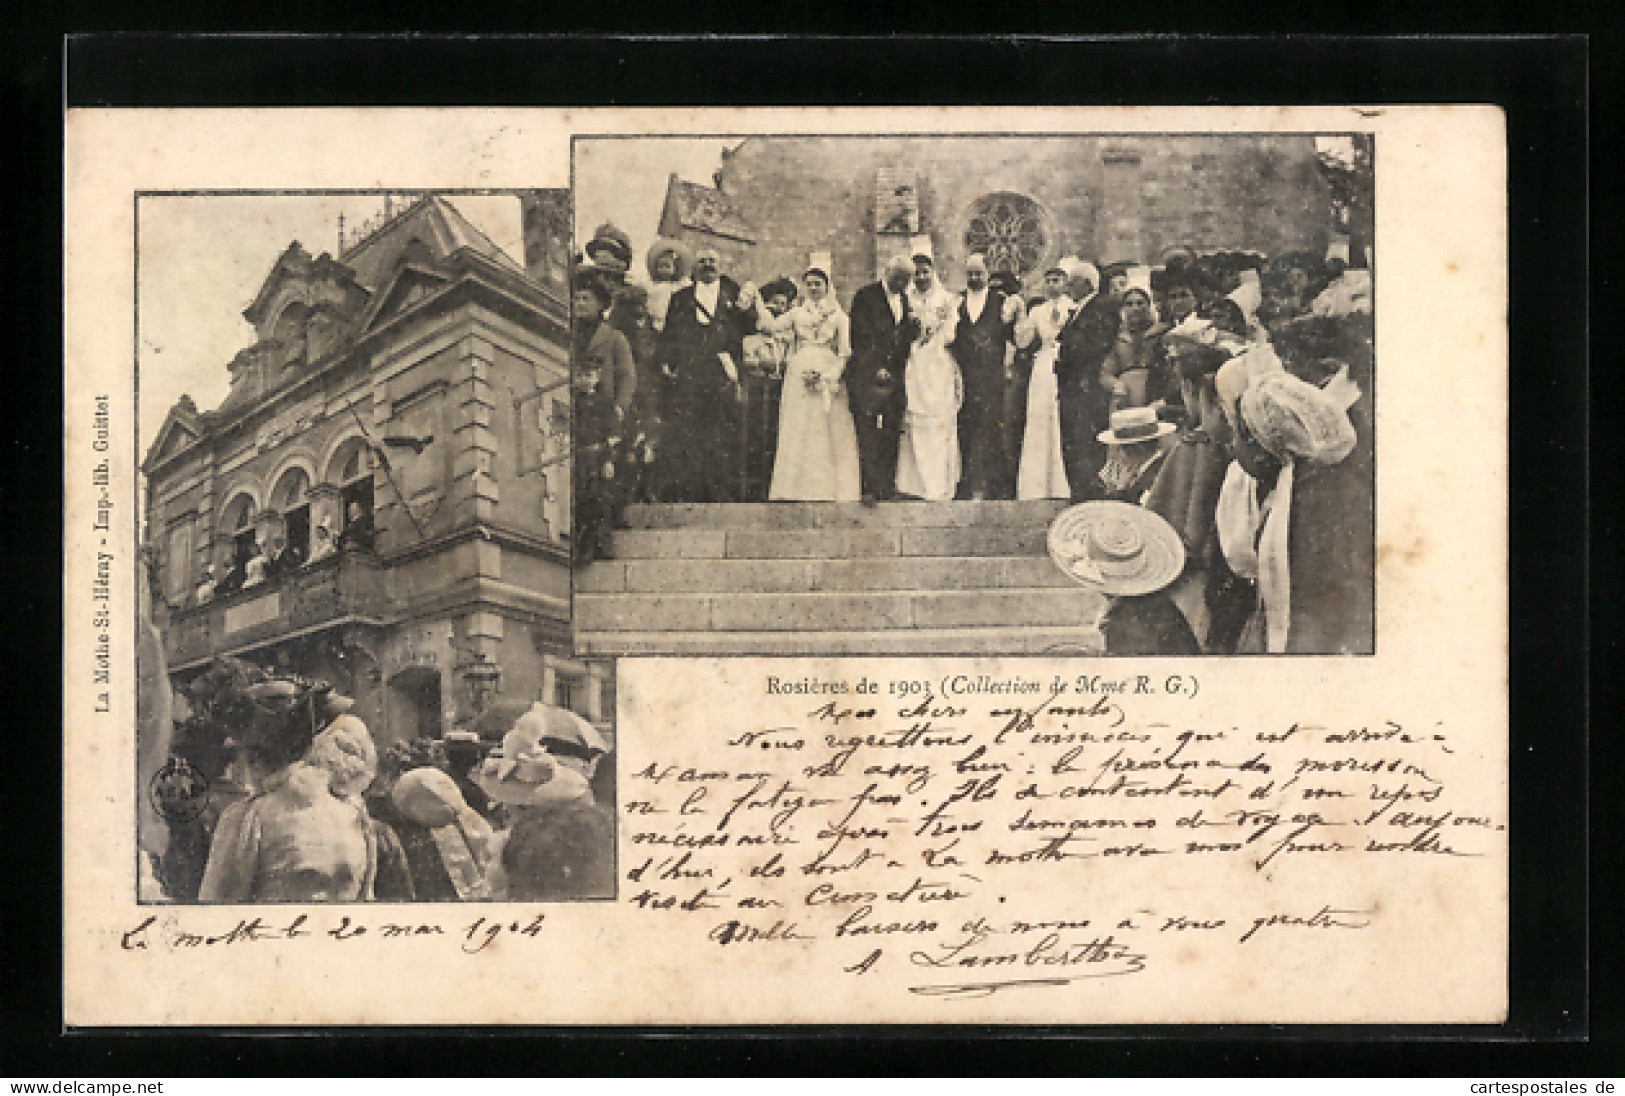 La Mothe-St-Héray - Imp.-lib. Guittet
Rosières de 1903 (Collection de Mme R. G.)
Mes chers enfants,
Nous regrettons l'insuccès qui est arrivé à
Maman va assez bien : la présence des
ne la fatigue pas. Ils se contentent d'un repos
nécessaire après trois semaines de voyage. aujour-
d'hui, ils sont à La mothe avec nous pour rendre
visite au
Mille baisers de nous à vous quatre
A. Lamberthon
La mothe le 20 mai 1904
www.delcampe.net
cartespostales de